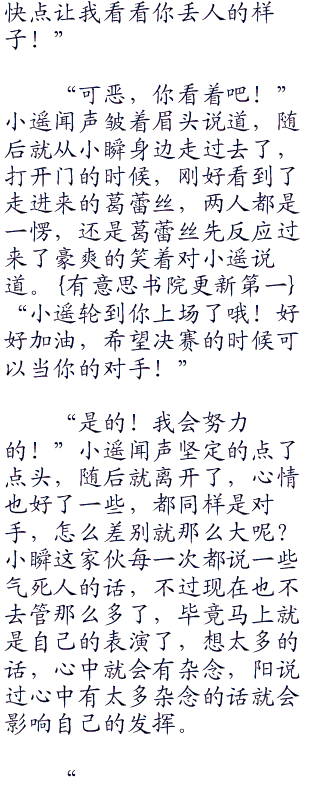 快点让我看看你丢人的样
子！”
“可恶，你看着吧！”
小遥闻声皱着眉头说道，随
后就从小瞬身边走过去了，
打开门的时候，刚好看到了
走进来的葛蕾丝，两人都是
一愣，还是葛蕾丝先反应过
来了豪爽的笑着对小遥说
道。{有意思书院更新第一}
“小遥轮到你上场了哦！好
好加油，希望决赛的时候可
以当你的对手！”
“是的！我会努力
的！”小遥闻声坚定的点了
点头，随后就离开了，心情
也好了一些，都同样是对
手，怎么差别就那么大呢？
小瞬这家伙每一次都说一些
气死人的话，不过现在也不
去管那么多了，毕竟马上就
是自己的表演了，想太多的
话，心中就会有杂念，阳说
过心中有太多杂念的话就会
影响自己的发挥。
“